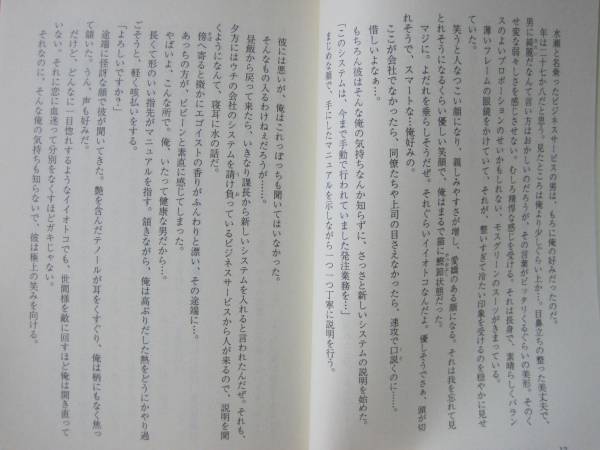 水瀬と名乗ったビジネスサービスの男は、もろに俺の好みだったのだ。
年は二十七か八だと思う。見たところは俺より少しぐらい上か…。目鼻立ちの整った美丈夫で、
男に綺麗だなんて言い方はおかしいのだろうが、その言葉がピッタリくるぐらいの美形。そのく
せ変な弱々しさを感じさせない、むしろ精悍な感じを受ける。それは長身で、素晴らしくバラン
スのよいプロポーションのせいかもしれない。モスグリーンのスーツがきまっている。
薄いフレームの眼鏡をかけていて、それが、整いすぎて冷たい印象を受けるのを穏やかに見せ
ていた。
笑うと人なつこい顔になり、親しみやすさが増し、愛嬌のある顔になる。それは我を忘れて見
とれそうになるくらい優しい笑顔で、俺はまるで猫に鰹節状態だった。
マジに。よだれを垂らしそうだぜ。それぐらいイイオトコなんだよ。優しそうでさぁ、頭が切
れそうで、スマートな…俺好みの。
ここが会社でなかったら、同僚たちや上司の目さえなかったら、速攻で口説くのに……。
惜しいよなぁ…。
もちろん彼はそんな俺の気持ちなんか知らずに、さっさと新しいシステムの説明を始めた。
「このシステムは、今まで手動で行われていました発注業務を…」
まじめな顔で、手にしたマニュアルを示しながら一つ一つ丁寧に説明を行う。
彼には悪いが、俺はこれっぽっちも聞いてはいなかった。
そんなもの入るわけねえだろうが……。
昼飯から戻って来たら、いきなり課長から新しいシステムを入れると言われたんだぜ。それも、
夕方にはウチの会社のシステムを請け負っているビジネスサービスから人が来るので、説明を聞
くようになんて、寝耳に水の話だ。
傍へ寄ると微かにエゴイストの香りがふんわりと漂い、その途端に…。
あっちの方が、ビビーンと素直に感じてしまった。
やばいよな、こんな所で。俺、いたって健康な男だから…。
長くて形のいい指先がマニュアルを指す。頷きながら、俺は高ぶりだした熱をどうにかやり過
ごそうと、軽く咳払いをする。
「よろしいですか？」
途端に怪訝な顔で彼が聞いてきた。艶を含んだテノールが耳をくすぐり、俺は柄にもなく焦っ
て頷いた。うん、声も好みだ。
だけど、どんなに一目惚れするようなイイオトコでも、世間様を敵に回すほど俺は開き直って
いない。それに恋に血迷って分別をなくすほどガキじゃない。
それなのに、そんな俺の気持ちも知らないで、彼は極上の笑みを向ける。